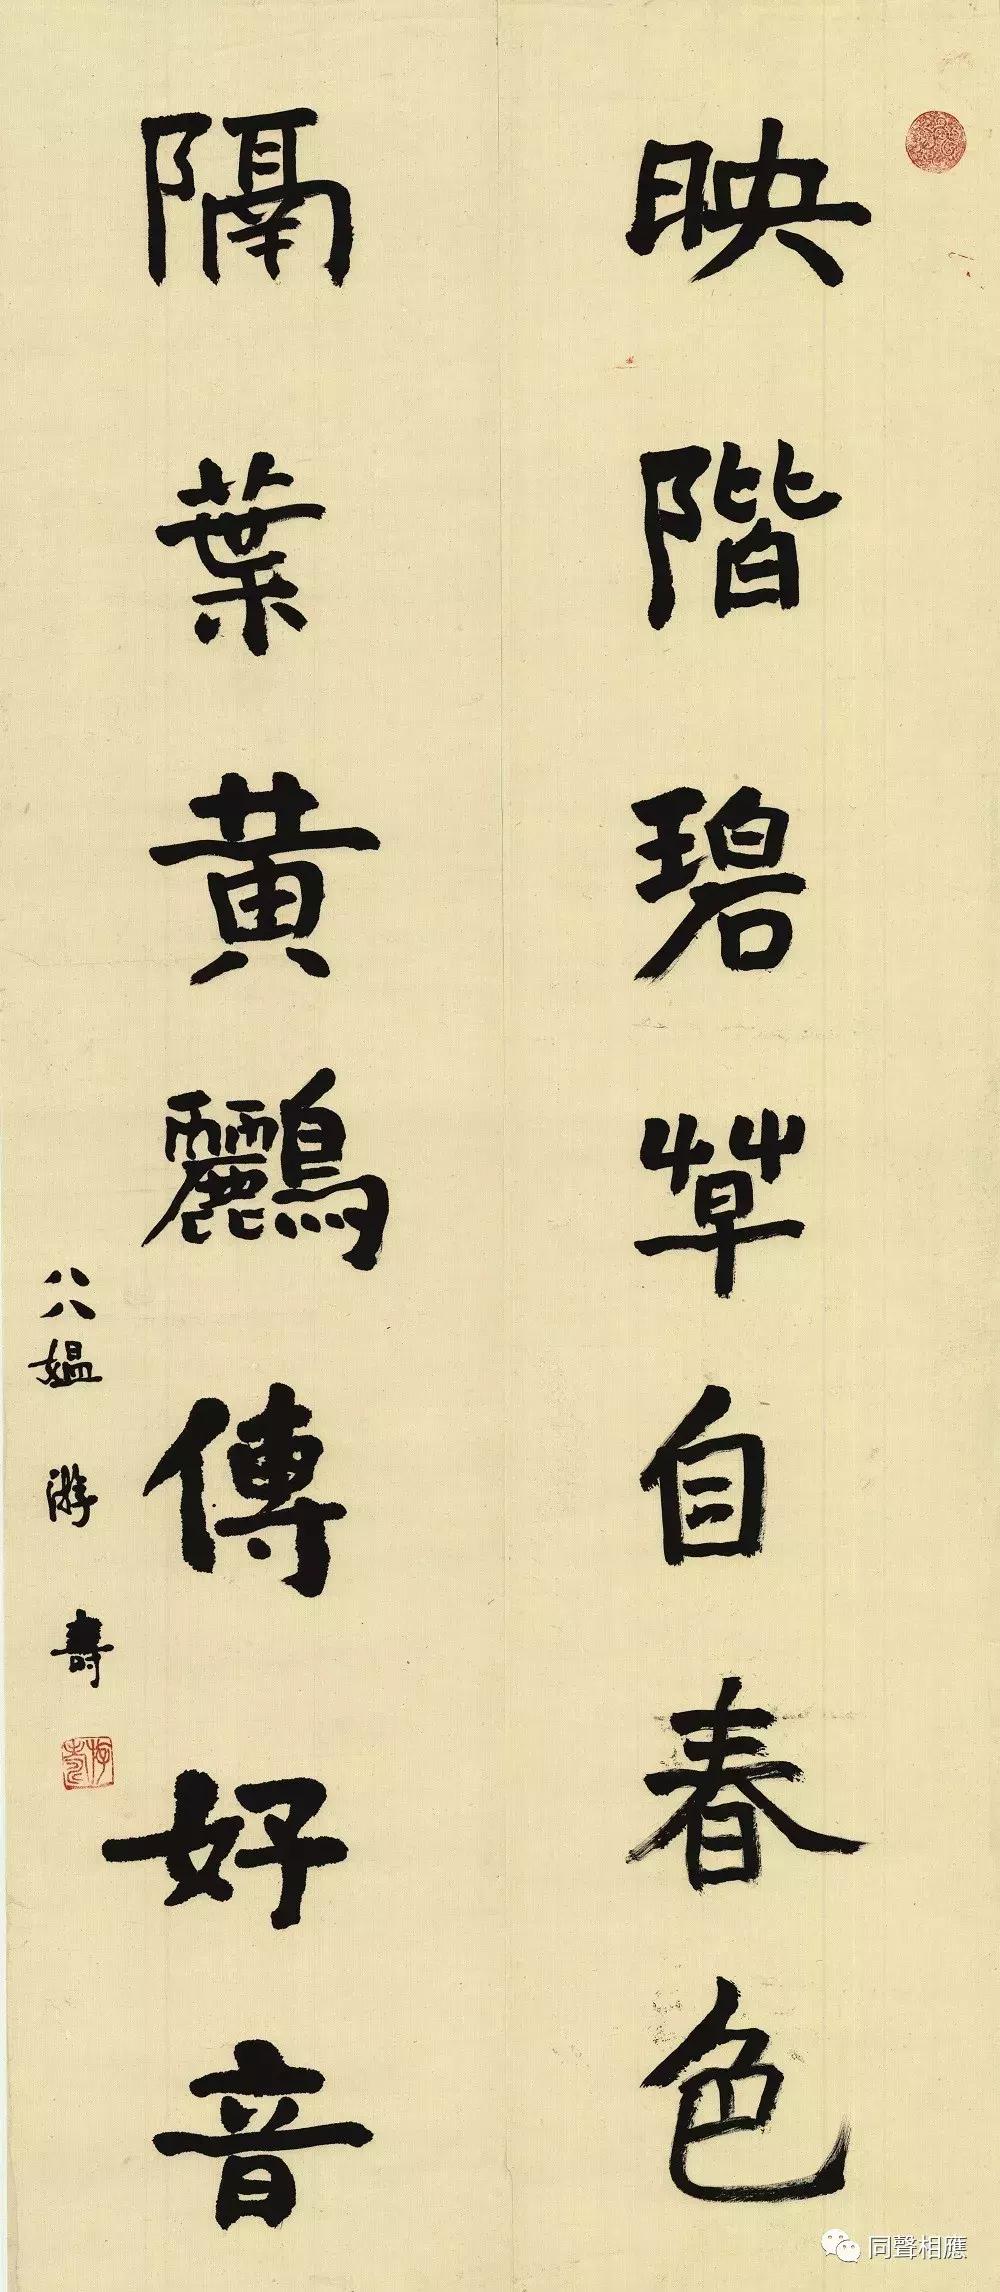 映階碧草自春色
隔葉黃鸝傳好音
八八媪 游壽
同聲相應